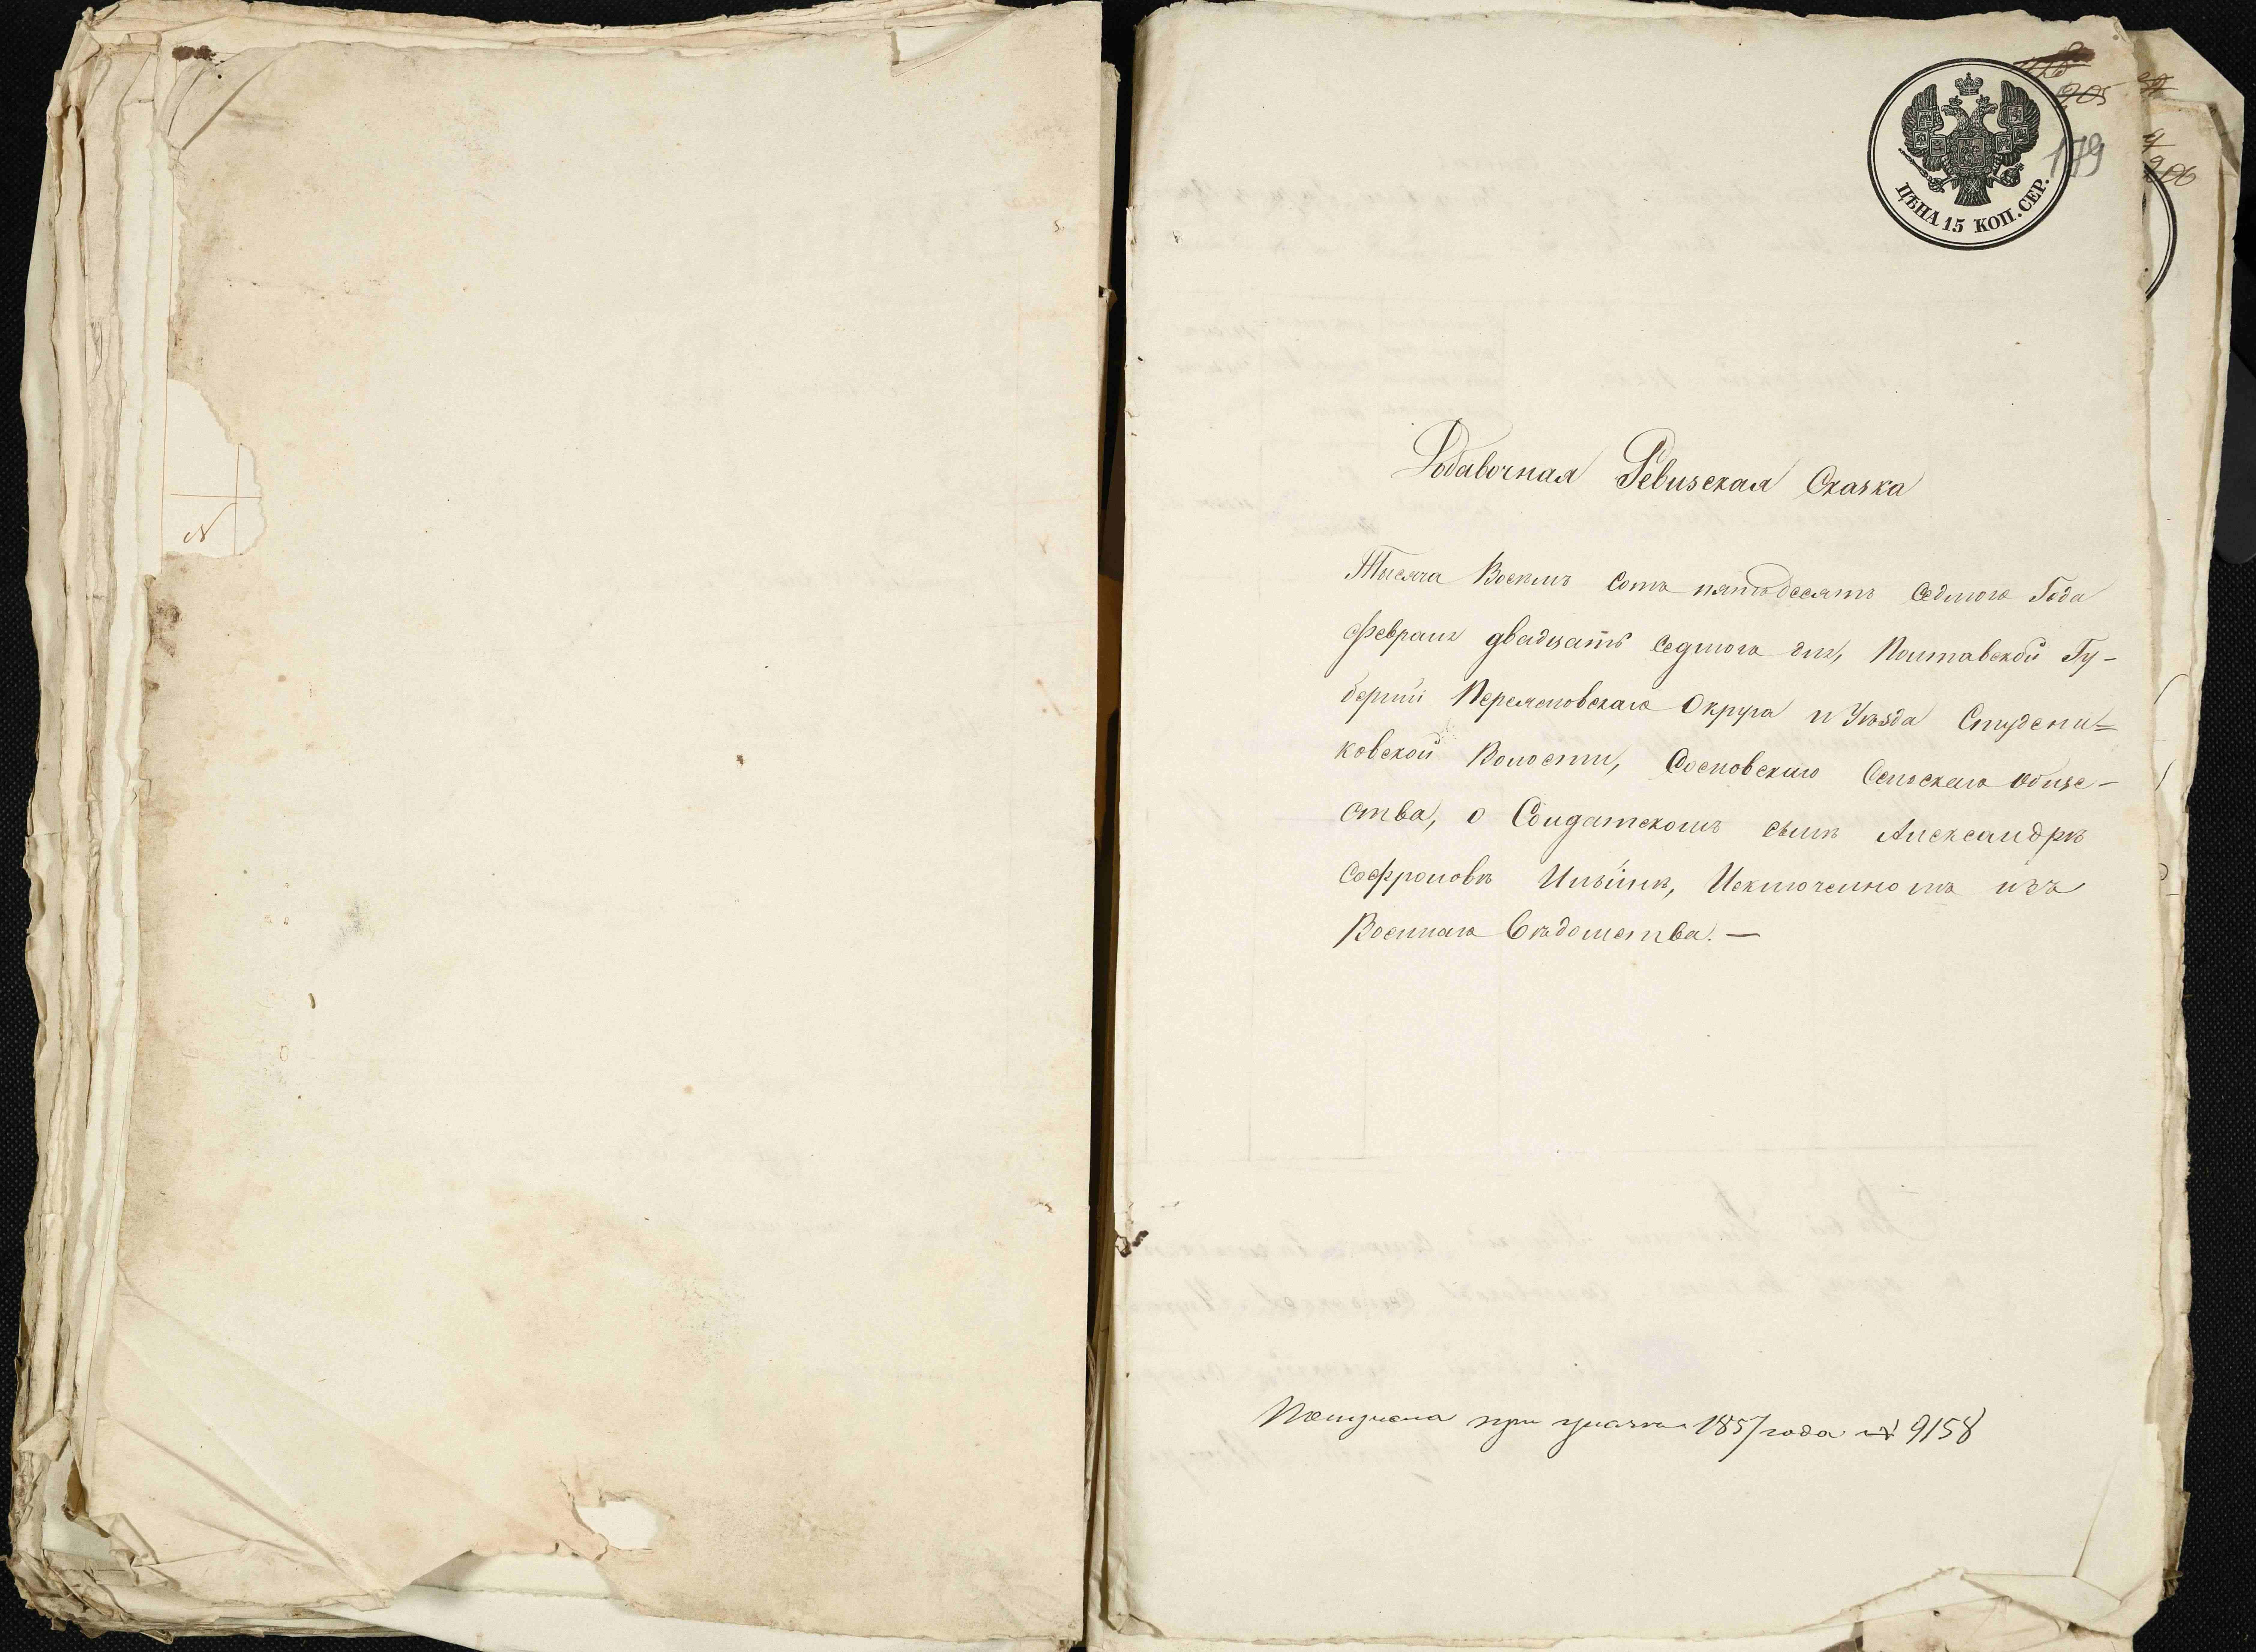 905
179
906
ЦѢНА 15 КОП. СЕР.
Добавочная Ревизская Сказка
Тысяча Восемь Сотъ пятьдесятъ Седмого Года
Февраля двадцать Седмого дня, Полтавской Гу-
берніи Переяславскаго Округа и Уѣзда Студени-
ковской Волости, Сосновскаго Сельскаго Обще-
ства, о Солдатскомъ сынѣ Александрѣ
Софроновѣ Ильинѣ, Исключенномъ изъ
Военнаго Вѣдомства. —
N
Получена при указѣ 1857 года № 9158